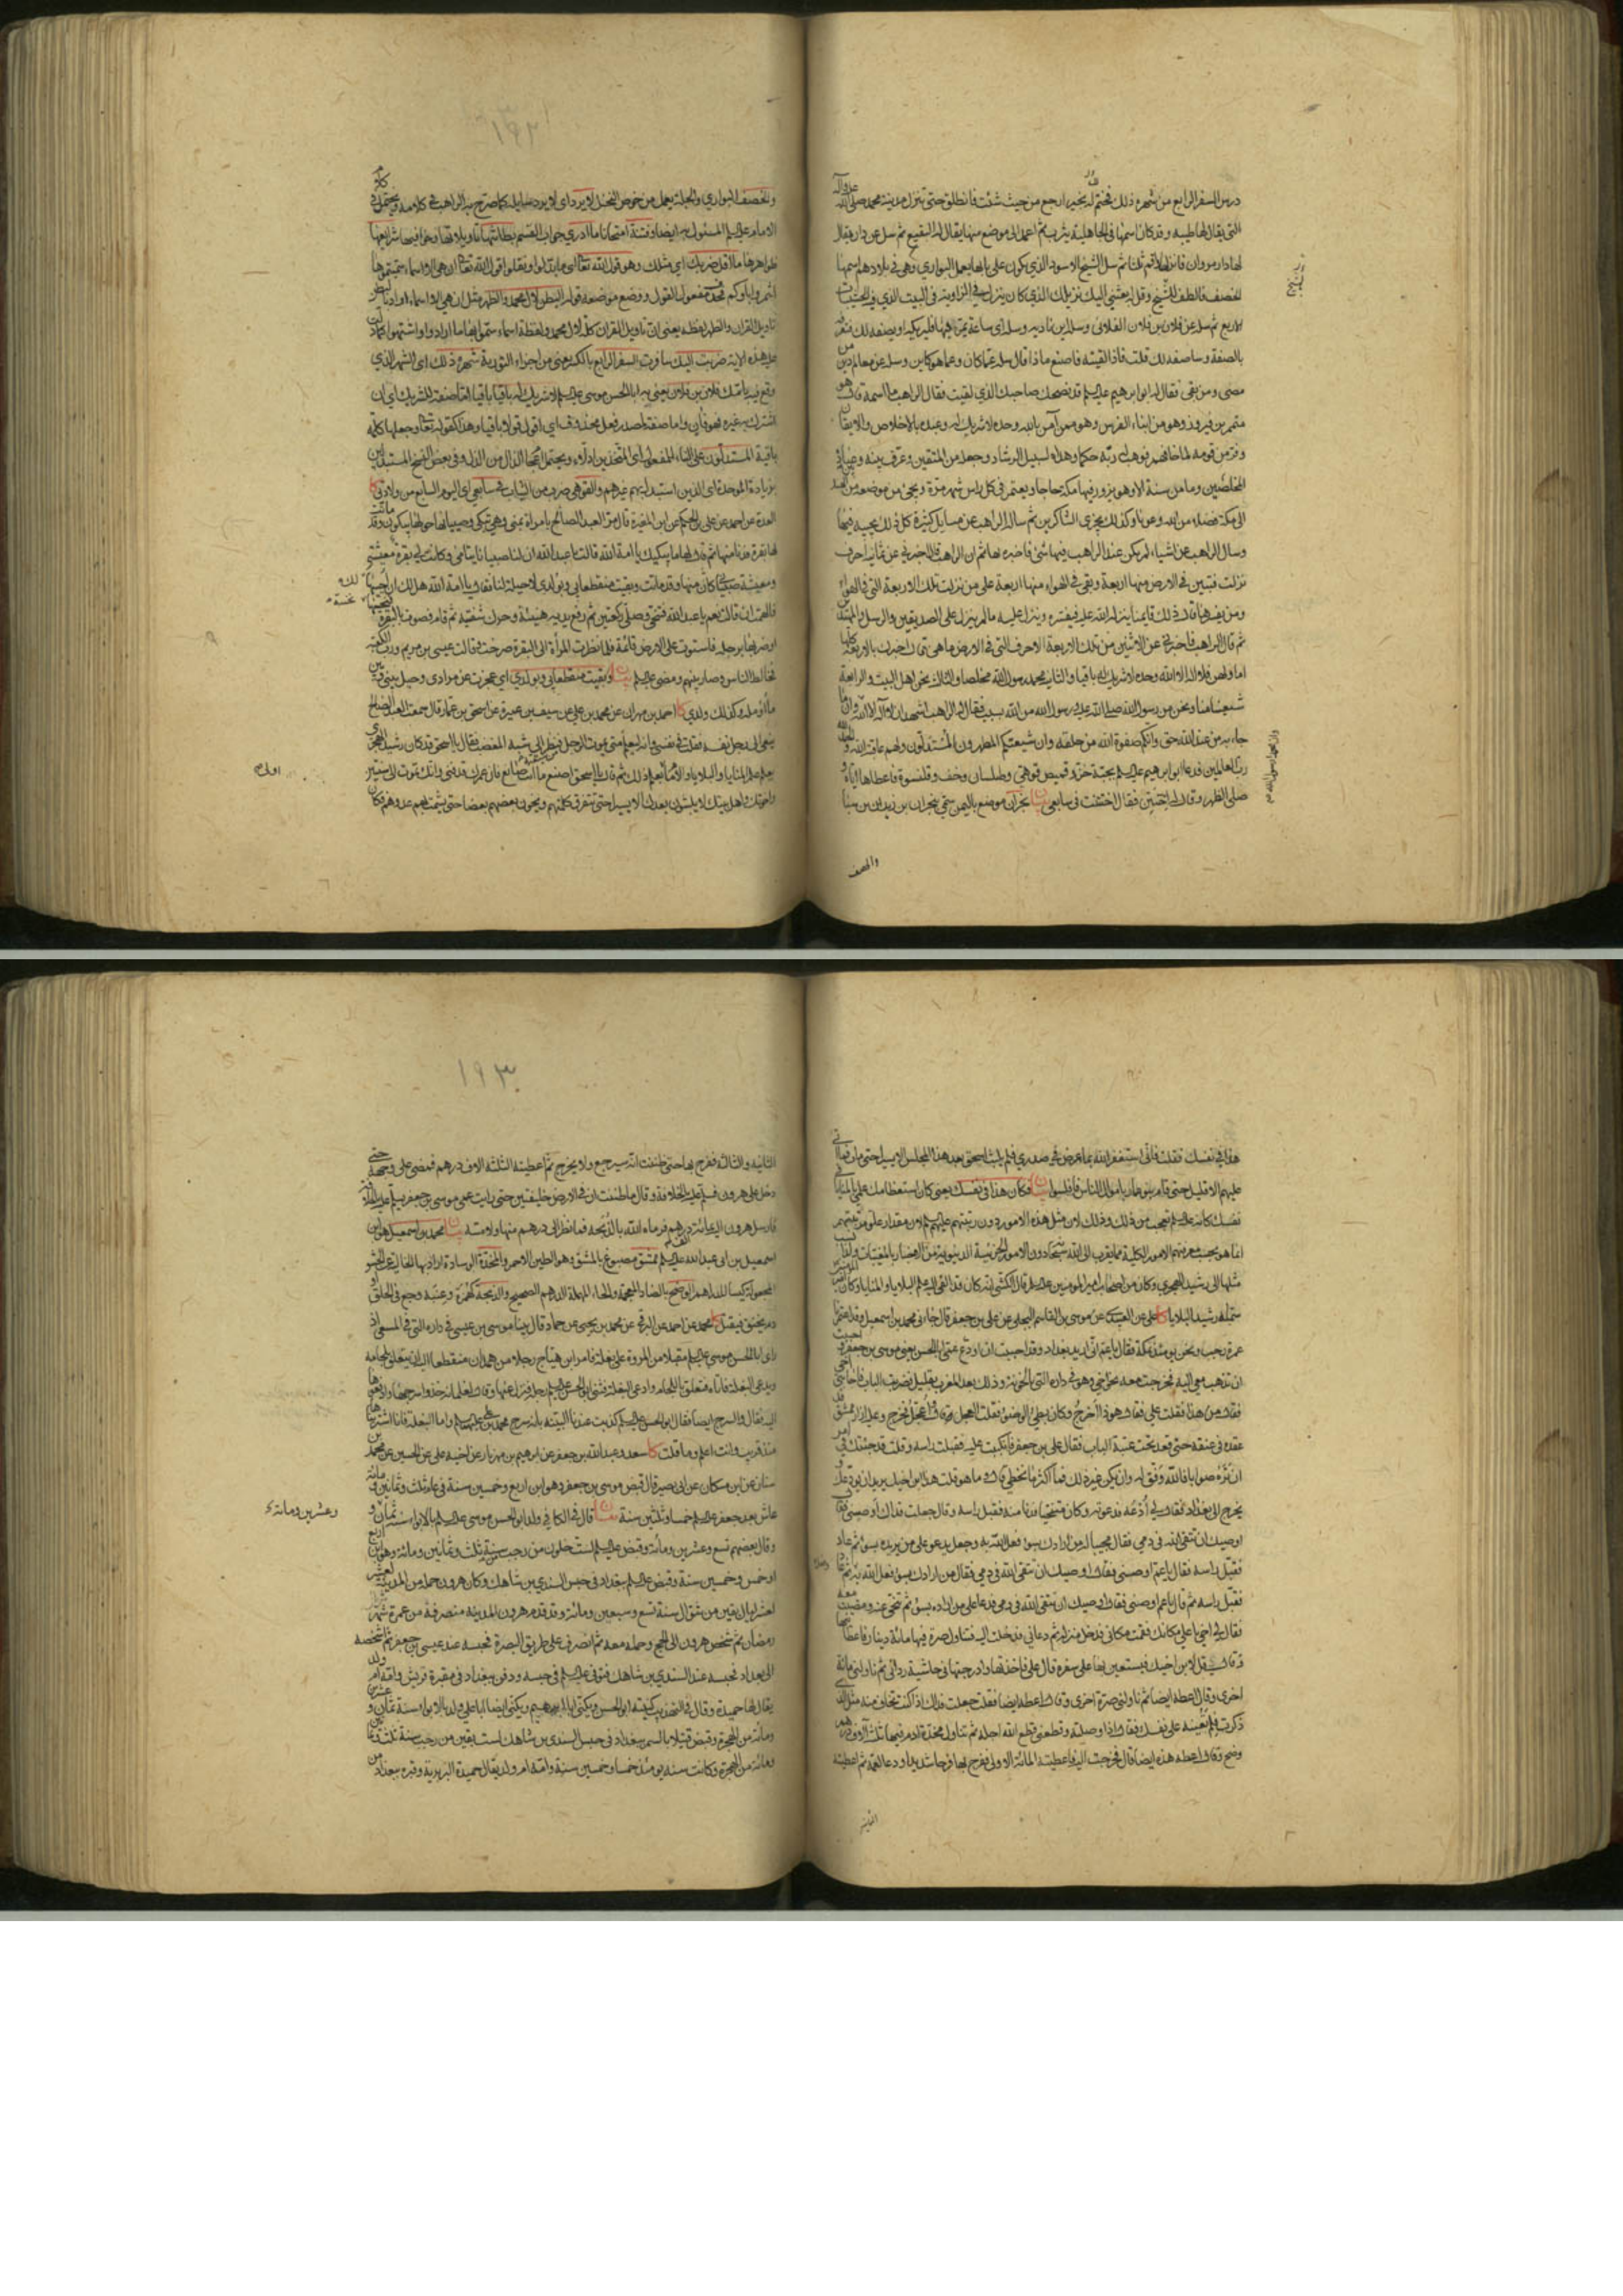 درس السفر الرابع من شهره ذلك فختم له بخير ارجع من حيث شئت فانطلق حتى تنزل مدينة محمد صلى الله عليه وآله
التي يقال لها طيبة وقد كان اسمها في الجاهلية يثرب ثم اعمد الى موضع منها يقال له البقيع ثم سل عن دار يقال
لها دار مروان فانزلها واقم ثلثا ثم سل الشيخ الاسود الذي يكون على بابها يعمل البواري وهي في بلادهم اسمها
الخصف فالطف للشيخ وقل له بعثني اليك نزيلك الذي كان ينزل في الزاوية في البيت الذي فيه الخشيبات
الاربع ثم سله عن فلان بن فلان الفلاني وسله اين ناديه وسله اي ساعة يمر فيها فليريكه او يصفه لك فتعرفه
بالصفة وساصفه لك قلت فاذا لقيته فاصنع ماذا قال سله عما كان وعما هو كاين وسله عن معالم دين من
مضى ومن بقي فقال له ابو ابرهيم عليه السلم قد نصحك صاحبك الذي لقيت فقال الراهب ما اسمه قال هو
متمم بن فيروز وهو من ابناء الفرس وهو ممن آمن بالله وحده لا شريك له وعبده بالاخلاص والايقان
وفر من قومه لما خافهم فوهب له ربه حكما وهداه لسبيل الرشاد وجعله من المتقين وعرف بينه وبين عباده
المخلصين وما من سنة الا وهو يزور فيها مكة حاجا ويعتمر في كل راس شهر مرة ويجئ من موضعه من الهند
الى مكة فضلا من الله وعونا وكذلك يجزي الشاكرين ثم ساله الراهب عن مسايل كثيرة كل ذلك يجيبه فيها
وسال الراهب عن اشياء لم يكن عند الراهب فيها شئ فاخبره بها ثم ان الراهب قال اخبرني عن ثمانية احرف
نزلت فتبين في الارض منها اربعة وبقي في الهواء منها اربعة على من نزلت تلك الاربعة التي في الهواء
ومن يفسرها قال ذلك قايمنا ينزله الله عليه فيفسره وينزل عليه ما لم ينزل على الصديقين والرسل والمهتدين
ثم قال الراهب فاخبرني عن الاثنين من تلك الاربعة الاحرف التي في الارض ما هي قال اخبرك بالاربعة كلها
اما اولهن فلا اله الا الله وحده لا شريك له باقيا والثانية محمد رسول الله مخلصا والثالثة نحن اهل البيت والرابعة
شيعتنا منا ونحن من رسول الله صلى الله عليه ورسول الله من الله بسبب فقال له الراهب اشهد ان لا اله الا الله وان ما
جاء به من عند الله حق وانكم صفوة الله من خلقه وان شيعتكم المطهرون المستدلون ولهم عاقبة الله والحمد لله
رب العالمين فدعا ابو ابرهيم عليه السلم بجبة خز وقميص قوهي وطيلسان وخف وقلنسوة فاعطاها اياه و
صلى الظهر وقال له اختتن فقال اختتنت في سابعي بيان نجران موضع باليمن سمي بنجران بن زيدان بن سبا
وان محمدا رسول الله
والخصف
١٩٢
والخصف البواري والجلة يعمل من خوص النخل لا يرد اي لا يرد سايله كما صرح به الراهب في كلامه ويحتمل كون
الامام عليه السلم المسئول به ايضا وفتنة امتحانا ما ادري جواب القسم بطائنها تاويلاتها وخوافيها شرايعها
ظواهرها ما اقل ضربك اي مثلك وهو قول الله تعالى اي ما ابتدلوا ونقلوا قول الله تعالى ان هي الا اسماء سميتموها
انتم واباؤكم فحذف مفعول القول ووضع موضعه قوله البطن لال محمد والظهر مثل ان هي الا اسماء
تاويل القران والظهر لفظه يعني ان تاويل القران كله لال محمد ولفظة اسماء سموا بها ما ارادوا واشتهوا كما دلت
عليه هذه الاية ضربت اليك سافرت السفر الرابع بالكسر يعني من اجزاء التورية شهره ذلك اي الشهر الذي
وقع فيه ياتمك فلان بن فلان يعني به ابا الحسن موسى عليه السلم لا شريك له باقيا باقيا اما صفة للشريك اي ان
اشترك به غيره فهو فان واما صفة لمصدر فعل محذوف اي اقول قولا باقيا وهذا كقوله تعالى وجعلها كلمة
باقية المستدلون على البناء للمفعول اي المتخذين ادلاء ويحتمل اعجام الذال من الذل وفي بعض النسخ المستبدلون
بزيادة الموحدة اي الذين استبدل بهم غيرهم والقوهي ضرب من الثياب في سابعي اي اليوم السابع من ولادتي كا
العدة عن احمد عن علي بن الحكم عن ابن المغيرة قال مر العبد الصالح بامراة بمنى وهي تبكي وصبيانها حولها يبكون وقد ماتت
لها بقرة فدنا منها ثم قال لها ما يبكيك يا امة الله قالت يا عبد الله ان لنا صبيانا يتامى وكانت لي بقرة معيشتي
ومعيشة صبياني كان منها وقد ماتت وبقيت منقطعا بي وبولدي لا حيلة لنا فقال يا امة الله هل لك ان احييها لك
فالهمت ان قالت نعم يا عبد الله فتنحى وصلى ركعتين ثم رفع يديه هنيئة وحرك شفتيه ثم قام فصوت بالبقرة
او ضربها برجله فاستوت على الارض قائمة فلما نظرت المراة الى البقرة صرخت وقالت عيسى بن مريم ورب الكعبة
فخالط الناس وصار بينهم ومضى عليه السلم بيان وبقيت منقطعا بي وبولدي اي عجزت عن مرادي وحيل بيني وبين
ما اؤمله وكذلك ولدي كا احمد بن مهران عن محمد بن علي عن سيف بن عميرة عن اسحق بن عمار قال سمعت العبد الصالح
ينعى الى رجل نفسه فقلت في نفسي وانه ليعلم متى يموت الرجل من شيعته فنظر الي شبه المغضب فقال يا اسحق قد كان رشيد الهجري
يعلم علم المنايا والبلايا والامام اولى بعلم ذلك ثم قال يا اسحق اصنع ما انت صانع فان عمرك قد فني وانك تموت الى سنتين
واخوتك واهل بيتك لا يلبثون بعدك الا يسيرا حتى تتفرق كلمتهم ويخون بعضهم بعضا حتى يشمت بهم عدوهم فكان
هذا في نفسك فقلت فاني استغفر الله بما عرض في صدري فلم يلبث اسحق بعد هذا المجلس الا يسيرا حتى مات فما اتى
عليهم الا قليل حتى قام بنو عمار باموال الناس فافلسوا بيان فكان هذا في نفسك يعني كان استعظامك علمي بالمنايا في
نفسك كانه عليه السلم تعجب من ذلك وذلك لان مثل هذه الامور دون رتبتهم عليهم السلم لان مقدار علو مرتبتهم
انما هو بحسب معرفتهم الامور الكلية مما يقرب الى الله سبحانه دون الامور الجزئية الدنيوية من الاخبار بالمغيبات
مثلها الى رشيد الهجري وكان من اصحاب امير المومنين عليه السلم قال الكشي انه كان قد القي اليه علم البلايا والمنايا وكان
سماه رشيد البلايا كا علي عن العبيدي عن موسى بن القاسم البجلي عن علي بن جعفر قال جاءني محمد بن اسمعيل وقد اعتمرنا
عمرة رجب ونحن يومئذ بمكة فقال يا عم اني اريد بغداد وقد احببت ان اودع عمي ابا الحسن يعني موسى بن جعفر واحببت
ان تذهب معي اليه فخرجت معه نحو اخي وهو في داره التي بالحوبة وذلك بعد المغرب بقليل فضربت الباب فاجابني اخي
فقال من هذا فقلت علي فقال هوذا اخرج وكان بطئ الوضوء فقلت العجل قال واعجل فخرج وعليه ازار ممشق قد
عقده في عنقه حتى قعد تحت عتبة الباب فقال علي بن جعفر فانكببت عليه فقبلت راسه وقلت قد جئتك في امر
ان تره صوابا فالله وفق له وان يكن غير ذلك فما اكثر ما نخطي قال وما هو قلت هذا ابن اخيك يريد ان يودعك و
يخرج الى بغداد فقال لي ادعه فدعوته وكان متنحيا فدنا منه فقبل راسه وقال جعلت فداك اوصني فقال
اوصيك ان تتقي الله في دمي فقال مجيبا له من ارادك بسوء فعل الله به وجعل يدعو على من يريده بسوء ثم عاد
فقبل راسه فقال يا عم اوصني فقال اوصيك ان تتقي الله في دمي فقال من ارادك بسوء فعل الله به ثم عاد
فقبل راسه ثم قال يا عم اوصني فقال اوصيك ان تتقي الله في دمي فدعا على من اراده بسوء ثم تنحى عنه ومضيت معه
فقال لي اخي يا علي مكانك فقمت مكاني فدخل منزله ثم دعاني فدخلت اليه فتناول صرة فيها مائة دينار فاعطانيها
وقال قل لابن اخيك يستعين بها على سفره قال علي فاخذتها وادرجتها في حاشية ردائي ثم ناولني مائة
اخرى وقال اعطه ايضا ثم ناولني صرة اخرى وقال اعطه ايضا فقلت جعلت فداك اذا كنت تخاف منه مثل الذي
ذكرت فلم تعينه على نفسك فقال اذا وصلته وقطعني قطع الله اجله ثم تناول مخدة ادم فيها ثلثة آلاف درهم
وضح وقال اعطه هذه ايضا قال فخرجت اليه فاعطيته المائة الاولى ففرح بها فرحا شديدا ودعا لعمه ثم اعطيته
الثانية
١٩٣
الثانية والثالثة ففرح بها حتى ظننت انه سيرجع ولا يخرج ثم اعطيته الثلثة الاف درهم فمضى على وجهه حتى
دخل على هرون فسلم عليه بالخلافة وقال ما ظننت ان في الارض خليفتين حتى رايت عمي موسى بن جعفر يسلم عليه بالخلافة
فارسل هرون اليه بمائة الف درهم فرماه الله بالذبحة فما نظر الى درهم منها ولا مسه بيان محمد بن اسمعيل هو ابن
اسمعيل بن ابي عبد الله عليه السلم ممشق مصبوغ بالمشق وهو الطين الاحمر والمخدة الوسادة اراد بها الخالية عن الحشو
المجعولة كيسا للدراهم الوضح بالضاد المعجمة والحاء المهملة الدرهم الصحيح والذبحة كهمزة وعنبة وجع في الحلق او
دم يخنق فيقتل كا محمد عن احمد عن البرقي عن محمد بن يحيى عن حماد قال بينا موسى بن عيسى في داره التي في المسعى اذ
راى ابا الحسن موسى عليه السلم مقبلا من المروة على بغلة فامر ابن هياج رجلا من همدان منقطعا اليه ان يتعلق بلجامه
ويدعي البغلة فاتاه فتعلق باللجام وادعى البغلة فثنى ابو الحسن عليه السلم رجله فنزل عنها وقال لغلمانه خذوا سرجها وادفعوها
اليه فقال والسرج ايضا فقال ابو الحسن عليه السلم كذبت عندنا البينة بانه سرج محمد بن علي عليهما السلم واما البغلة فانا اشتريناها
منذ قريب وانت اعلم وما قلت كا سعد وعبد الله بن جعفر عن ابرهيم بن مهزيار عن اخيه علي عن الحسين عن محمد بن
سنان عن ابن مسكان عن ابي بصير قال قبض موسى بن جعفر وهو ابن اربع وخمسين سنة في عام ثلث وثمانين ومائة و
عاش بعد جعفر عليه السلم خمسا وثلثين سنة بيان قال في الكافي ولد ابو الحسن موسى عليه السلم بالابواء سنة ثمان و
عشرين ومائة
وقال بعضهم تسع وعشرين ومائة وقبض عليه السلم لست خلون من رجب سنة ثلث وثمانين ومائة وهو ابن اربع
او خمس وخمسين سنة وقبض عليه السلم ببغداد في حبس السندي بن شاهك وكان هرون حمله من المدينة
لعشر ليال بقين من شوال سنة تسع وسبعين ومائة وقد قدم هرون المدينة منصرفه من عمرة شهر
رمضان ثم شخص هرون الى الحج وحمله معه ثم انصرف على طريق البصرة فحبسه عند عيسى بن جعفر ثم اشخصه
الى بغداد فحبسه عند السندي بن شاهك فتوفى عليه السلم في حبسه ودفن ببغداد في مقبرة قريش وامه ام ولد
يقال لها حميدة وقال في التهذيب كنيته ابو الحسن ويكنى ابا ابرهيم ويكنى ايضا ابا علي ولد بالابواء سنة ثمان وعشرين
ومائة من الهجرة وقبض قتيلا بالسم ببغداد في حبس السندي بن شاهك لست بقين من رجب سنة ثلث وثمانين
ومائة من الهجرة وكانت سنه يومئذ خمسا وخمسين سنة وامه ام ولد يقال حميدة البربرية وقبره ببغداد من